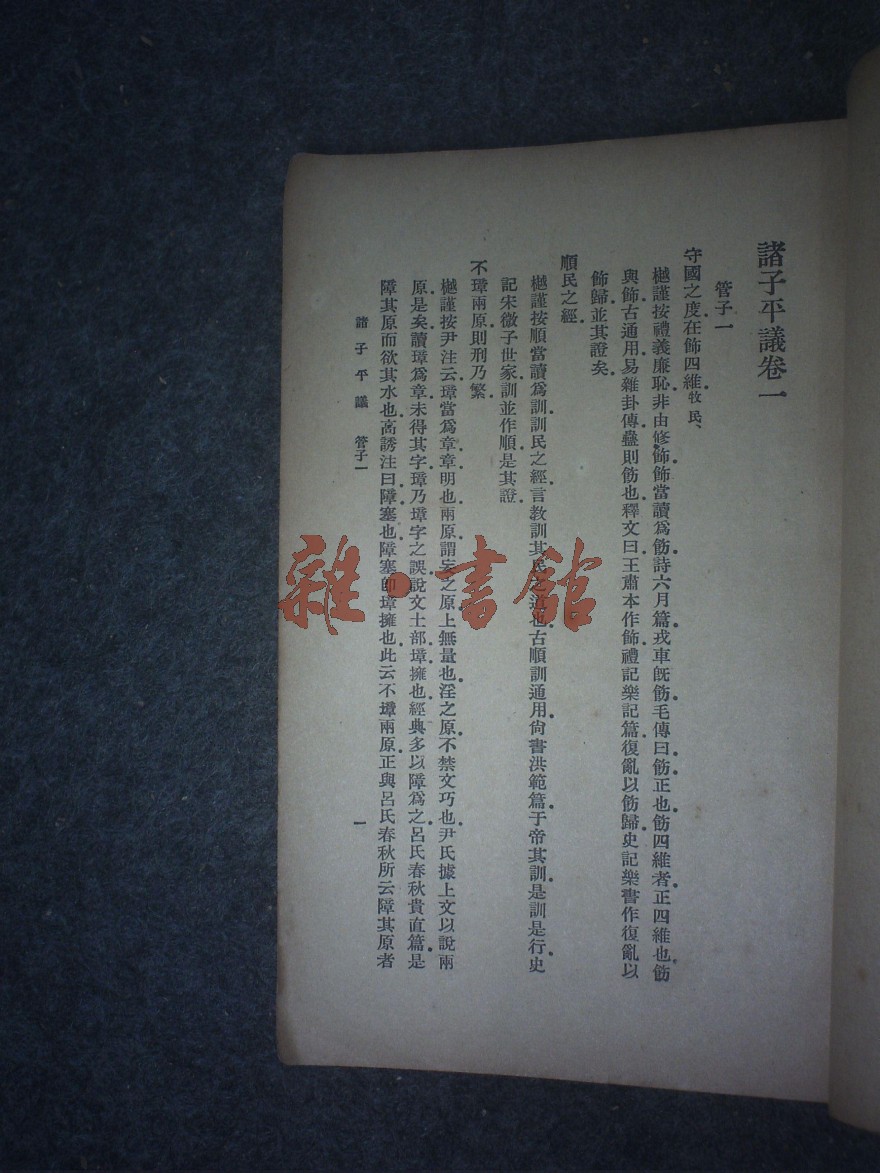 諸子平議卷一
管子一
守國之度在飾四維牧民、
樾謹按禮義廉恥非由修飾飾當讀爲飭詩六月篇戎車旣飭毛傳曰飭正也飭四維者正四維也飭
與飾古通用易雜卦傳蠱則飭也釋文曰王肅本作飾禮記樂記篇復亂以飭歸史記樂書作復亂以
飾歸並其證矣
順民之經
樾謹按順當讀爲訓訓民之經言教訓其民之道也古順訓通用尙書洪範篇于帝其訓是訓是行史
記宋微子世家訓並作順是其證
不璋兩原則刑乃繁
樾謹按尹注云璋當爲章章明也兩原謂妄之原上無量也淫之原不禁文巧也尹氏據上文以說兩
原是矣讀璋爲章未得其字璋乃墇字之誤說文土部墇擁也經典多以障爲之呂氏春秋貴直篇是
障其原而欲其水也高誘注曰障塞也障塞卽墇擁也此云不墇兩原正與呂氏春秋所云障其原者
諸子平議 管子一
一
雜·書館